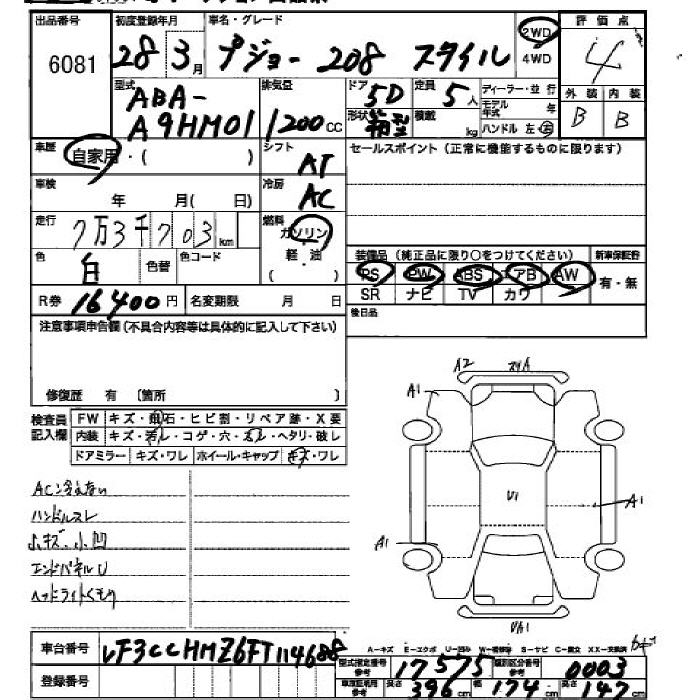 出品番号 初度登録年月 車名・グレード 2WD 評価点
6081 28 3月 プジョー 208 スタイル 4WD 4
型式 排気量 ドア 定員 ディーラー・並行 外装 内装
ABA- 5D 5人 モデル年式 年 B B
A9HM01 1200cc 形状 箱型 積載 kg ハンドル 左・右
車歴 自家用・( ) シフト AT セールスポイント(正常に機能するものに限ります)
車検 年 月( 日) 冷房 AC
走行 7万3千703km 燃料 ガソリン
軽・油
( )
色 白 色替 色コード 装備品(純正品に限り○をつけてください) 新車保証書
PS PW ABS エアB AW 有・無
R券 16400円 名変期限 月 日 SR ナビ TV カワ
注意事項申告欄(不具合内容等は具体的に記入して下さい) 後日品
修復歴 有 〔箇所 〕
検査員記入欄 FW キズ・飛石・ヒビ割・リペア跡・X要
内装 キズ・汚レ・コゲ・穴・スレ・ヘタリ・破レ
ドアミラー キズ・ワレ ホイール・キャップ キズ・ワレ
A2 スリA
A1
AC冷えない
U1 A1
ハンドルスレ
小キズ、小凹 A1
エンドパネルU
ヘッドライトくもり
UA1
A-キズ E-エクボ U-凹み W-補修跡 S-サビ C-腐食 XX-交換済
車台番号 VF3CCHMZ6FT114688
型式指定番号 参考 17575 類別区分番号 参考 0003
登録番号 車庫証明用 参考 長さ 396cm 幅 174cm 高さ 147cm